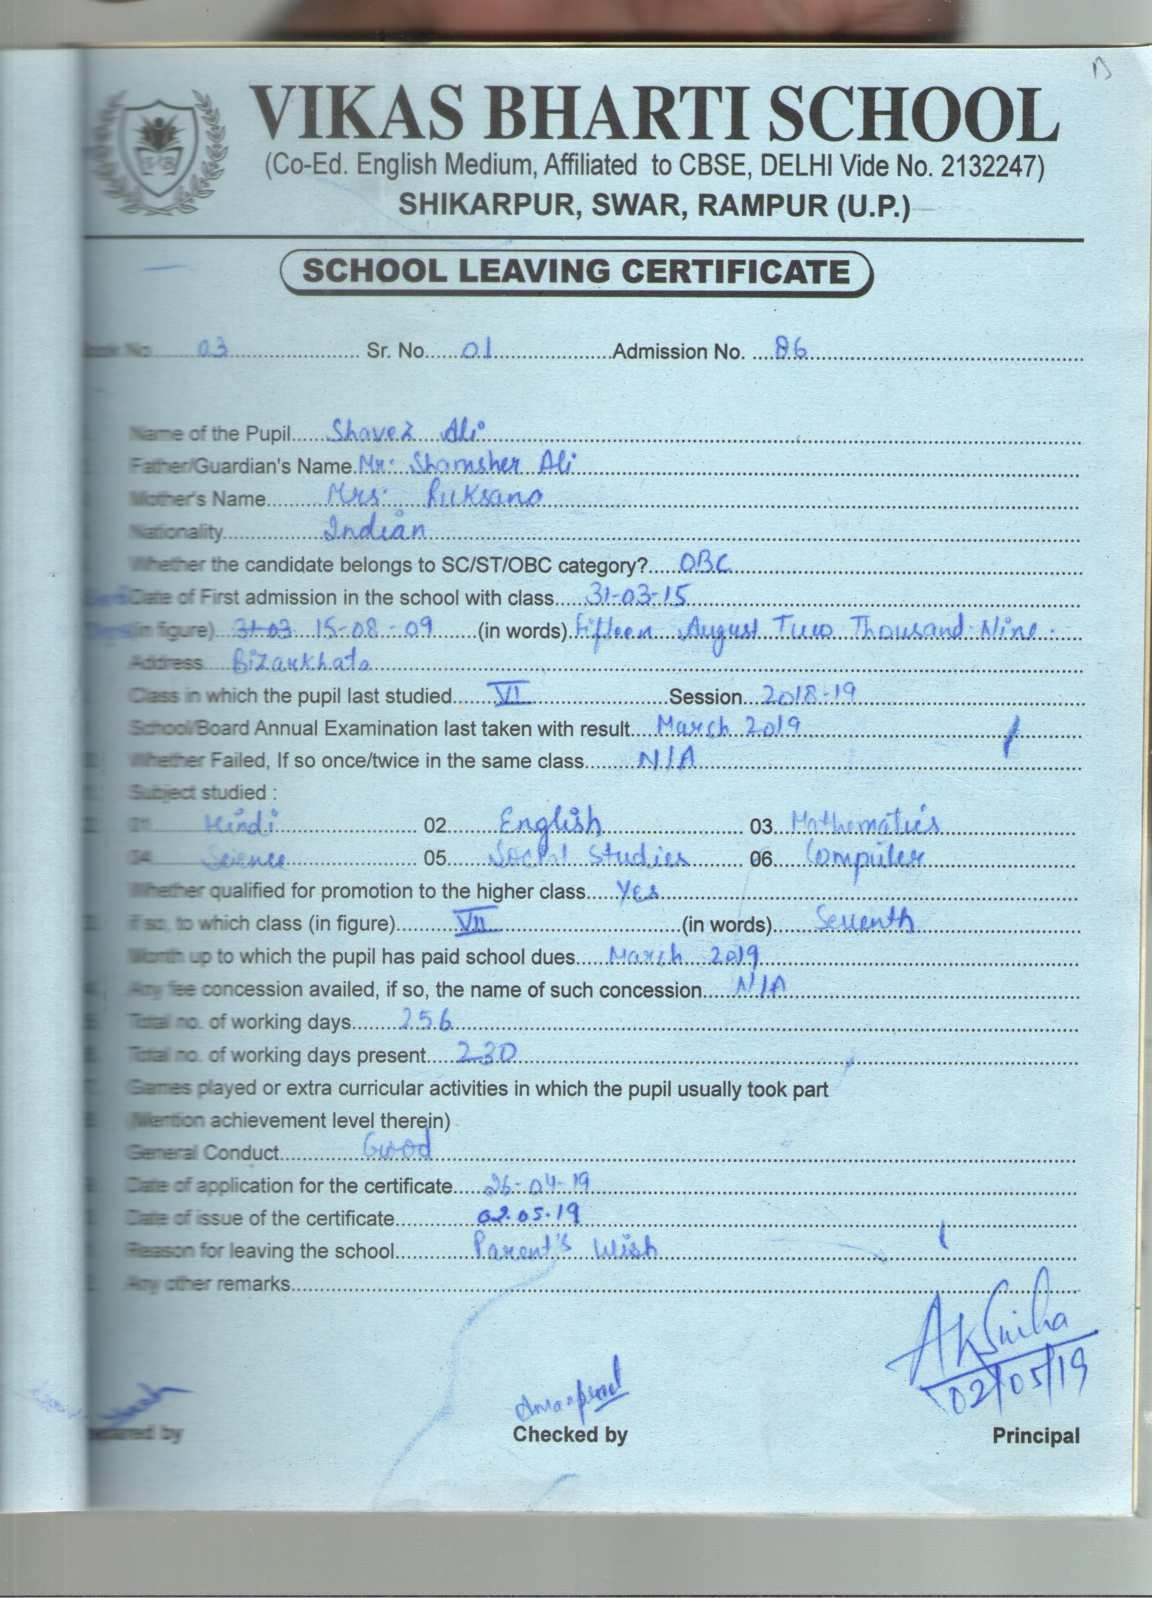 VIKAS BHARTI SCHOOL
(Co-Ed. English Medium, Affiliated to CBSE, DELHI Vide No. 2132247)
SHIKARPUR, SWAR, RAMPUR (U.P.)
SCHOOL LEAVING CERTIFICATE
Book No. 03 Sr. No. 01 Admission No. 86
Name of the Pupil Shavez Ali
Father/Guardian's Name Mr. Shamsher Ali
Mother's Name Mrs. Ruksana
Nationality Indian
Whether the candidate belongs to SC/ST/OBC category? OBC
Date of First admission in the school with class 31-03-15
(in figure) 31-03 15-08-09 (in words) Fifteen August Two Thousand Nine.
Address Bizarkhata
Class in which the pupil last studied VI Session 2018-19
School/Board Annual Examination last taken with result March 2019
Whether Failed, If so once/twice in the same class N/A
Subject studied :
01 Hindi 02 English 03. Mathematics
04 Science 05 Social Studies 06 Computer
Whether qualified for promotion to the higher class Yes
if so, to which class (in figure) VII (in words) Seventh
Month up to which the pupil has paid school dues March 2019
Any fee concession availed, if so, the name of such concession N/A
Total no. of working days 256
Total no. of working days present 230
Games played or extra curricular activities in which the pupil usually took part
(Mention achievement level therein)
General Conduct Good
Date of application for the certificate 26-04-19
Date of issue of the certificate 02.05.19
Reason for leaving the school Parent's Wish
Any other remarks
AKSinha
02/05/19
Prepared by Checked by Principal